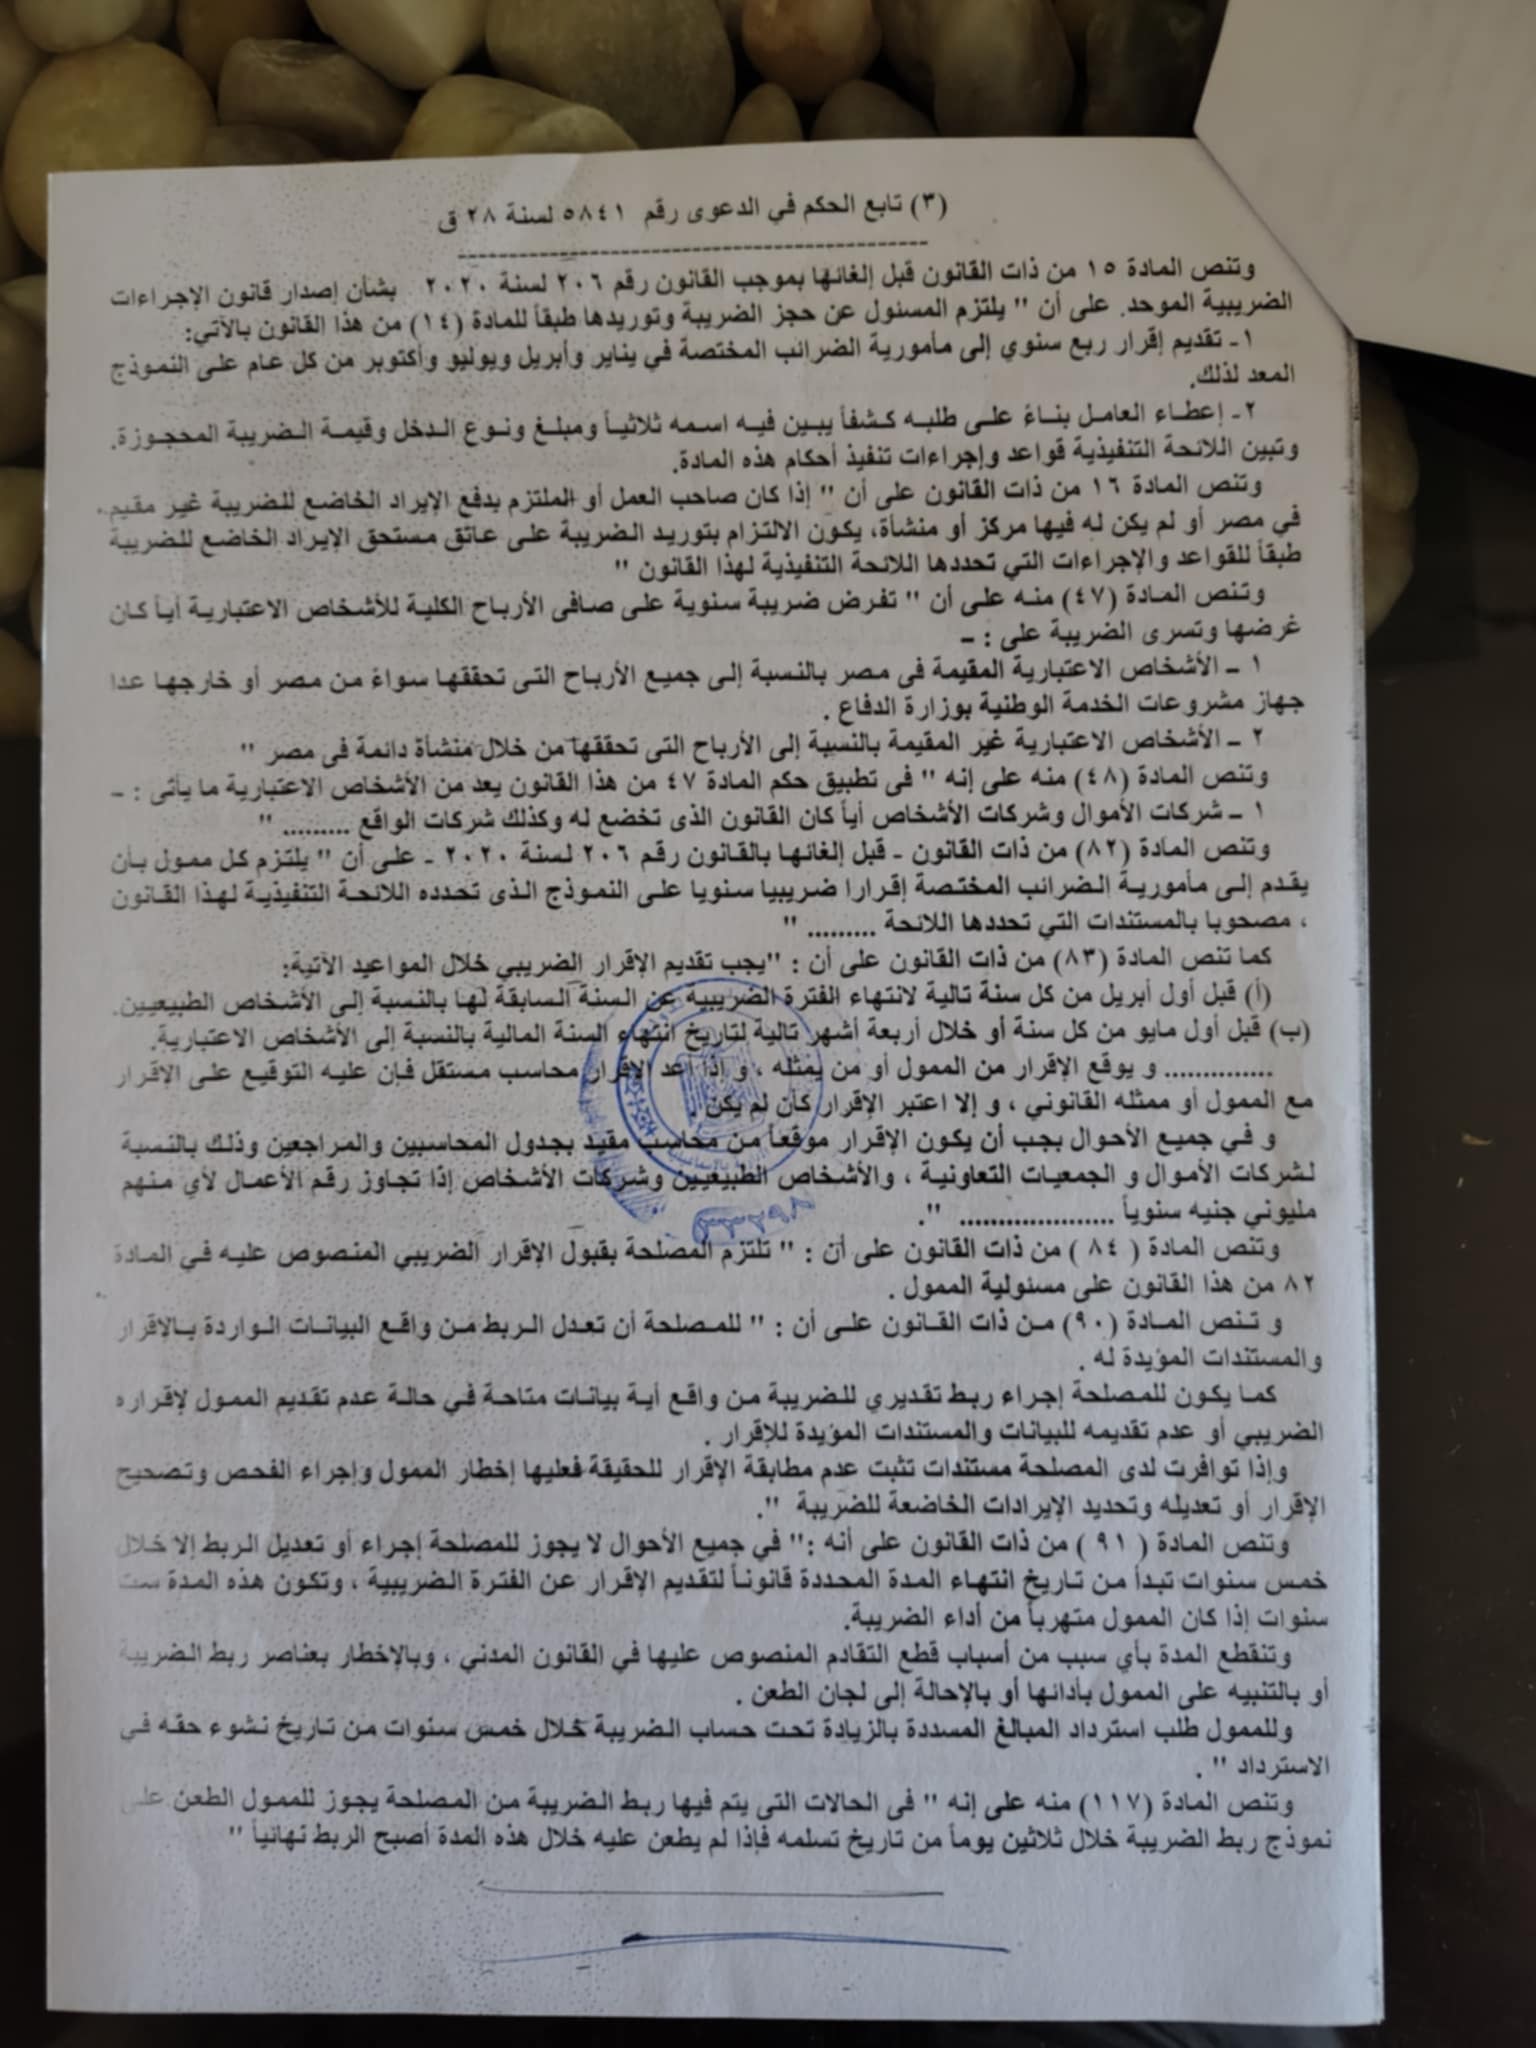 (٣) تابع الحكم في الدعوى رقم ٥٨٤١ لسنة ٢٨ ق
وتنص المادة ١٥ من ذات القانون قبل إلغائها بموجب القانون رقم ٢٠٦ لسنة ٢٠٢٠ بشأن إصدار قانون الإجراءات
الضريبية الموحد. على أن " يلتزم المسئول عن حجز الضريبة وتوريدها طبقاً للمادة (١٤) من هذا القانون بالآتي:
١- تقديم إقرار ربع سنوي إلى مأمورية الضرائب المختصة في يناير وأبريل ويوليو وأكتوبر من كل عام على النموذج
المعد لذلك.
٢- إعطاء العامل بناءً على طلبه كشفاً يبين فيه اسمه ثلاثياً ومبلغ ونوع الدخل وقيمة الضريبة المحجوزة.
وتبين اللائحة التنفيذية قواعد وإجراءات تنفيذ أحكام هذه المادة.
وتنص المادة ١٦ من ذات القانون على أن " إذا كان صاحب العمل أو الملتزم بدفع الإيراد الخاضع للضريبة غير مقيم
في مصر أو لم يكن له فيها مركز أو منشأة، يكون الالتزام بتوريد الضريبة على عاتق مستحق الإيراد الخاضع للضريبة
طبقاً للقواعد والإجراءات التي تحددها اللائحة التنفيذية لهذا القانون "
وتنص المادة (٤٧) منه على أن " تفرض ضريبة سنوية على صافى الأرباح الكلية للأشخاص الاعتبارية أياً كان
غرضها وتسرى الضريبة على : –
١ – الأشخاص الاعتبارية المقيمة فى مصر بالنسبة إلى جميع الأرباح التى تحققها سواءً من مصر أو خارجها عدا
جهاز مشروعات الخدمة الوطنية بوزارة الدفاع .
٢ – الأشخاص الاعتبارية غير المقيمة بالنسبة إلى الأرباح التى تحققها من خلال منشأة دائمة فى مصر "
وتنص المادة (٤٨) منه على إنه " فى تطبيق حكم المادة ٤٧ من هذا القانون يعد من الأشخاص الاعتبارية ما يأتى : –
١ – شركات الأموال وشركات الأشخاص أياً كان القانون الذى تخضع له وكذلك شركات الواقع ......... "
وتنص المادة (٨٢) من ذات القانون - قبل إلغائها بالقانون رقم ٢٠٦ لسنة ٢٠٢٠ - على أن " يلتزم كل ممول بأن
يقدم إلى مأمورية الضرائب المختصة إقرارا ضريبيا سنويا على النموذج الذى تحدده اللائحة التنفيذية لهذا القانون
، مصحوبا بالمستندات التي تحددها اللائحة ......... "
كما تنص المادة (٨٣) من ذات القانون على أن : "يجب تقديم الإقرار الضريبي خلال المواعيد الآتية:
(أ) قبل أول أبريل من كل سنة تالية لانتهاء الفترة الضريبية عن السنة السابقة لها بالنسبة إلى الأشخاص الطبيعيين.
(ب) قبل أول مايو من كل سنة أو خلال أربعة أشهر تالية لتاريخ انتهاء السنة المالية بالنسبة إلى الأشخاص الاعتبارية.
.............. و يوقع الإقرار من الممول أو من يمثله ، و إذا أعد الإقرار محاسب مستقل فإن عليه التوقيع على الإقرار
مع الممول أو ممثله القانوني ، و إلا اعتبر الإقرار كأن لم يكن .
و في جميع الأحوال يجب أن يكون الإقرار موقعاً من محاسب مقيد بجدول المحاسبين والمراجعين وذلك بالنسبة
لشركات الأموال و الجمعيات التعاونية ، والأشخاص الطبيعيين وشركات الأشخاص إذا تجاوز رقم الأعمال لأي منهم
مليوني جنيه سنوياً .................... ".
وتنص المادة ( ٨٤ ) من ذات القانون على أن : " تلتزم المصلحة بقبول الإقرار الضريبي المنصوص عليه في المادة
٨٢ من هذا القانون على مسئولية الممول .
و تنص المادة (٩٠) من ذات القانون على أن : " للمصلحة أن تعدل الربط من واقع البيانات الواردة بالإقرار
والمستندات المؤيدة له .
كما يكون للمصلحة إجراء ربط تقديري للضريبة من واقع أية بيانات متاحة في حالة عدم تقديم الممول لإقراره
الضريبي أو عدم تقديمه للبيانات والمستندات المؤيدة للإقرار .
وإذا توافرت لدى المصلحة مستندات تثبت عدم مطابقة الإقرار للحقيقة فعليها إخطار الممول وإجراء الفحص وتصحيح
الإقرار أو تعديله وتحديد الإيرادات الخاضعة للضريبة ".
وتنص المادة ( ٩١ ) من ذات القانون على أنه :" في جميع الأحوال لا يجوز للمصلحة إجراء أو تعديل الربط إلا خلال
خمس سنوات تبدأ من تاريخ انتهاء المدة المحددة قانوناً لتقديم الإقرار عن الفترة الضريبية ، وتكون هذه المدة ست
سنوات إذا كان الممول متهرباً من أداء الضريبة.
وتنقطع المدة بأي سبب من أسباب قطع التقادم المنصوص عليها في القانون المدني ، وبالإخطار بعناصر ربط الضريبة
أو بالتنبيه على الممول بأدائها أو بالإحالة إلى لجان الطعن .
وللممول طلب استرداد المبالغ المسددة بالزيادة تحت حساب الضريبة خلال خمس سنوات من تاريخ نشوء حقه في
الاسترداد " .
وتنص المادة (١١٧) منه على إنه " فى الحالات التى يتم فيها ربط الضريبة من المصلحة يجوز للممول الطعن على
نموذج ربط الضريبة خلال ثلاثين يوماً من تاريخ تسلمه فإذا لم يطعن عليه خلال هذه المدة أصبح الربط نهائياً "